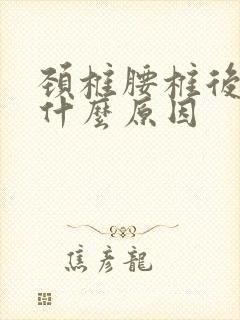 頸椎腰椎後
什麼原因
焦彦龍